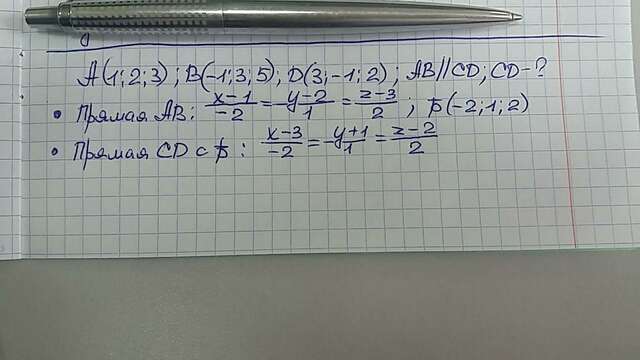 A(1;2;3); B(-1;3;5), D(3;-1;2); AB//CD; CD-?
• Прямая AB: (x-1)/(-2) = (y-2)/1 = (z-3)/2, p̄(-2;1;2)
• Прямая CD с p̄: (x-3)/(-2) = (y+1)/1 = (z-2)/2